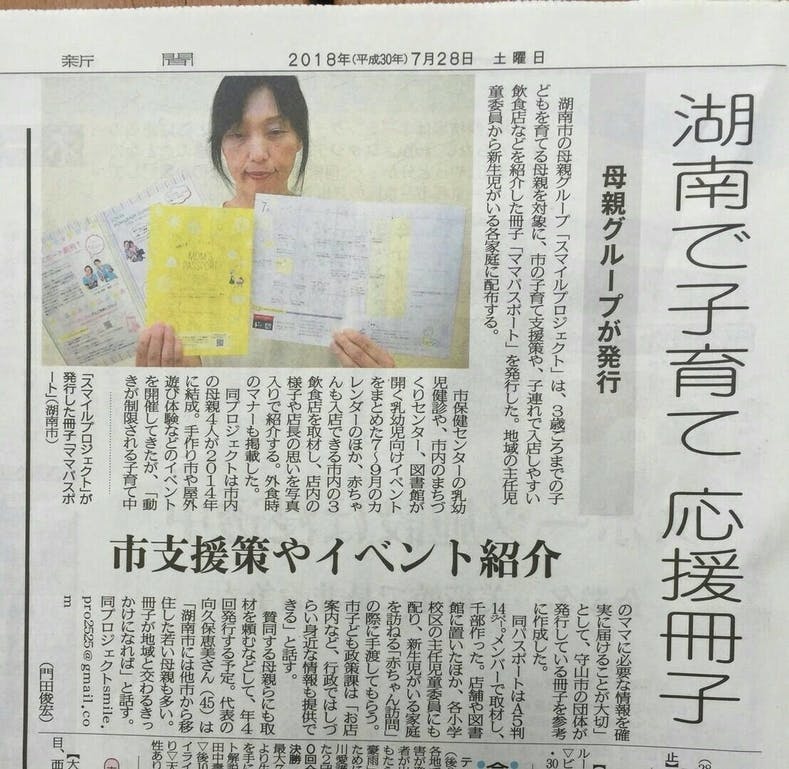 新聞
2018年(平成30年)7月28日 土曜日
湖南で子育て 応援冊子
母親グループが発行
湖南市の母親グループ「スマイルプロジェクト」は、3歳ごろまでの子
どもを育てる母親を対象に、市の子育て支援策や、子連れで入店しやすい
飲食店などを紹介した冊子「ママパスポート」を発行した。地域の主任児
童委員から新生児がいる各家庭に配布する。
市保健センターの乳幼
児健診や、市内のまちづ
くりセンター、図書館が
開く乳幼児向けイベント
をまとめた7〜9月のカ
レンダーのほか、赤ちゃ
んも入店できる市内の3
飲食店を取材し、店内の
様子や店長の思いを写真
入りで紹介する。外食時
のマナーも掲載した。
同プロジェクトは市内
の母親4人が2014年
に結成。手作り市や屋外
遊び体験などのイベント
を開催してきたが、「動
きが制限される子育て中
「スマイルプロジェクト」が
発行した冊子「ママパスポ
ート」(湖南市)
市支援策やイベント紹介
のママに必要な情報を確
実に届けることが大切」
として、守山市の団体が
発行している冊子を参考
に作成した。
同パスポートはA5判
14㌻。メンバーで取材し、
千部作った。店舗や図書
館に置いたほか、各小学
校区の主任児童委員にも
配り、新生児がいる家庭
を訪ねる「赤ちゃん訪問」
の際に手渡してもらう。
市子ども政策課は「お店
案内など、行政ではしづ
らい身近な情報も提供で
きる」と話す。
賛同する母親らにも取
材を頼むなどして、年4
回発行する予定。代表の
向久保恵美さん(45)は
「湖南市には他市から移
住した若い母親も多い。
冊子が地域と交わるきっ
かけになれば」と話す。
同プロジェクトsmile.
pro2525@gmail.co
m
(門田俊宏)